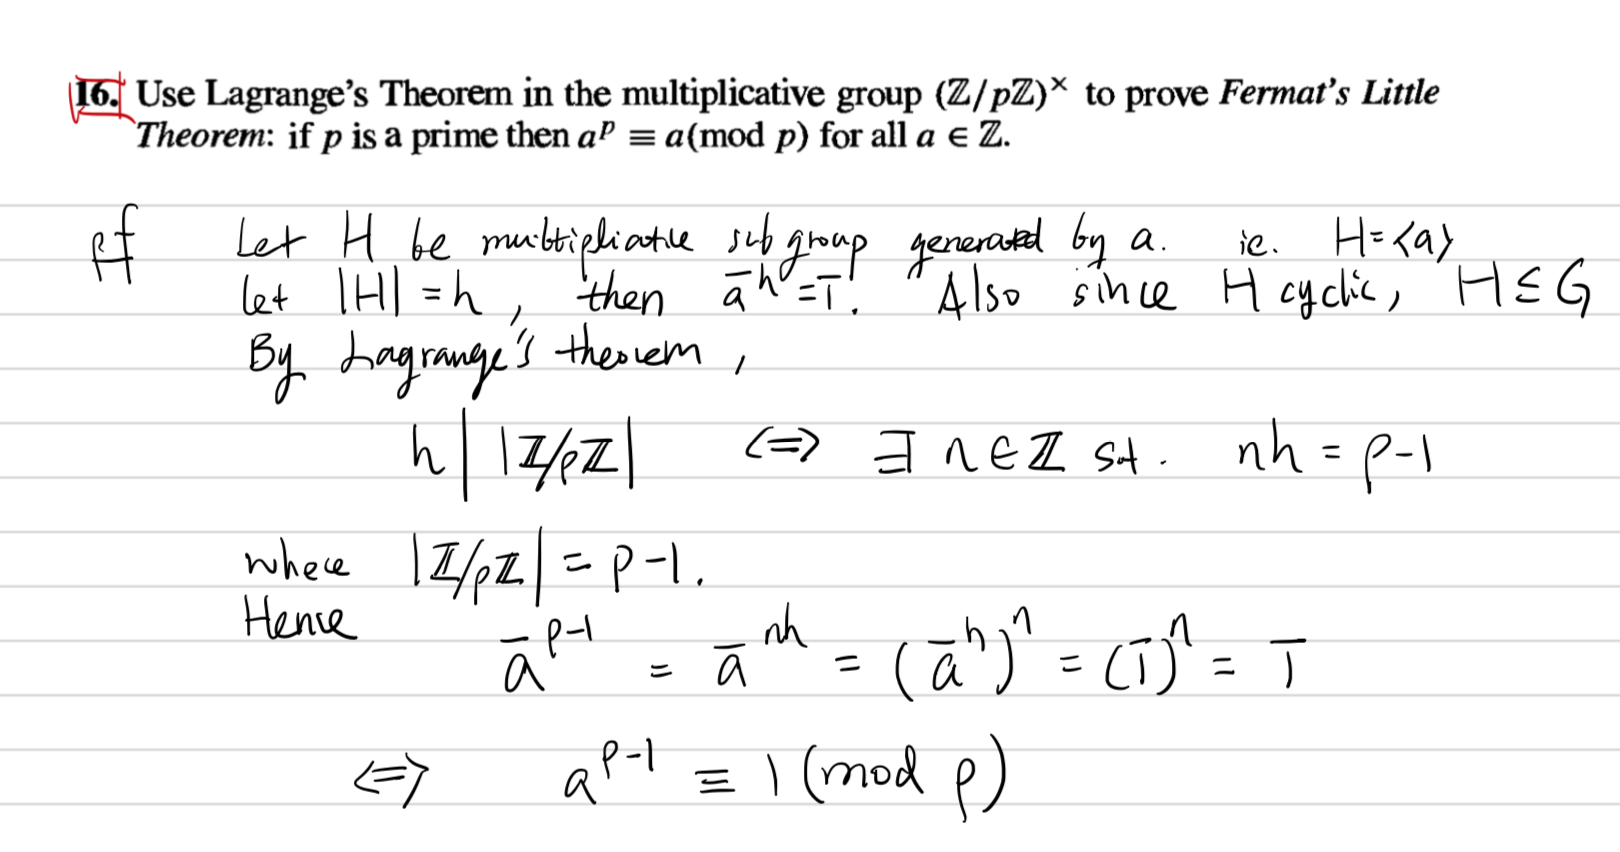 16. Use Lagrange's Theorem in the multiplicative group (ℤ/pℤ)ˣ to prove Fermat's Little
Theorem: if p is a prime then aᵖ ≡ a(mod p) for all a ∈ ℤ.
pf Let H be multiplicative subgroup generated by a. ie. H=<a>
let |H| = h, then ā^h = 1̄. Also since H cyclic, H ≤ G
By Lagrange's theorem,
h | |ℤ/pℤ| <=> ∃ n∈ℤ st. nh = p-1
where |ℤ/pℤ| = p-1.
Hence
ā^(p-1) = ā^(nh) = (ā^h)^n = (1̄)^n = 1̄
<=> a^(p-1) ≡ 1 (mod p)